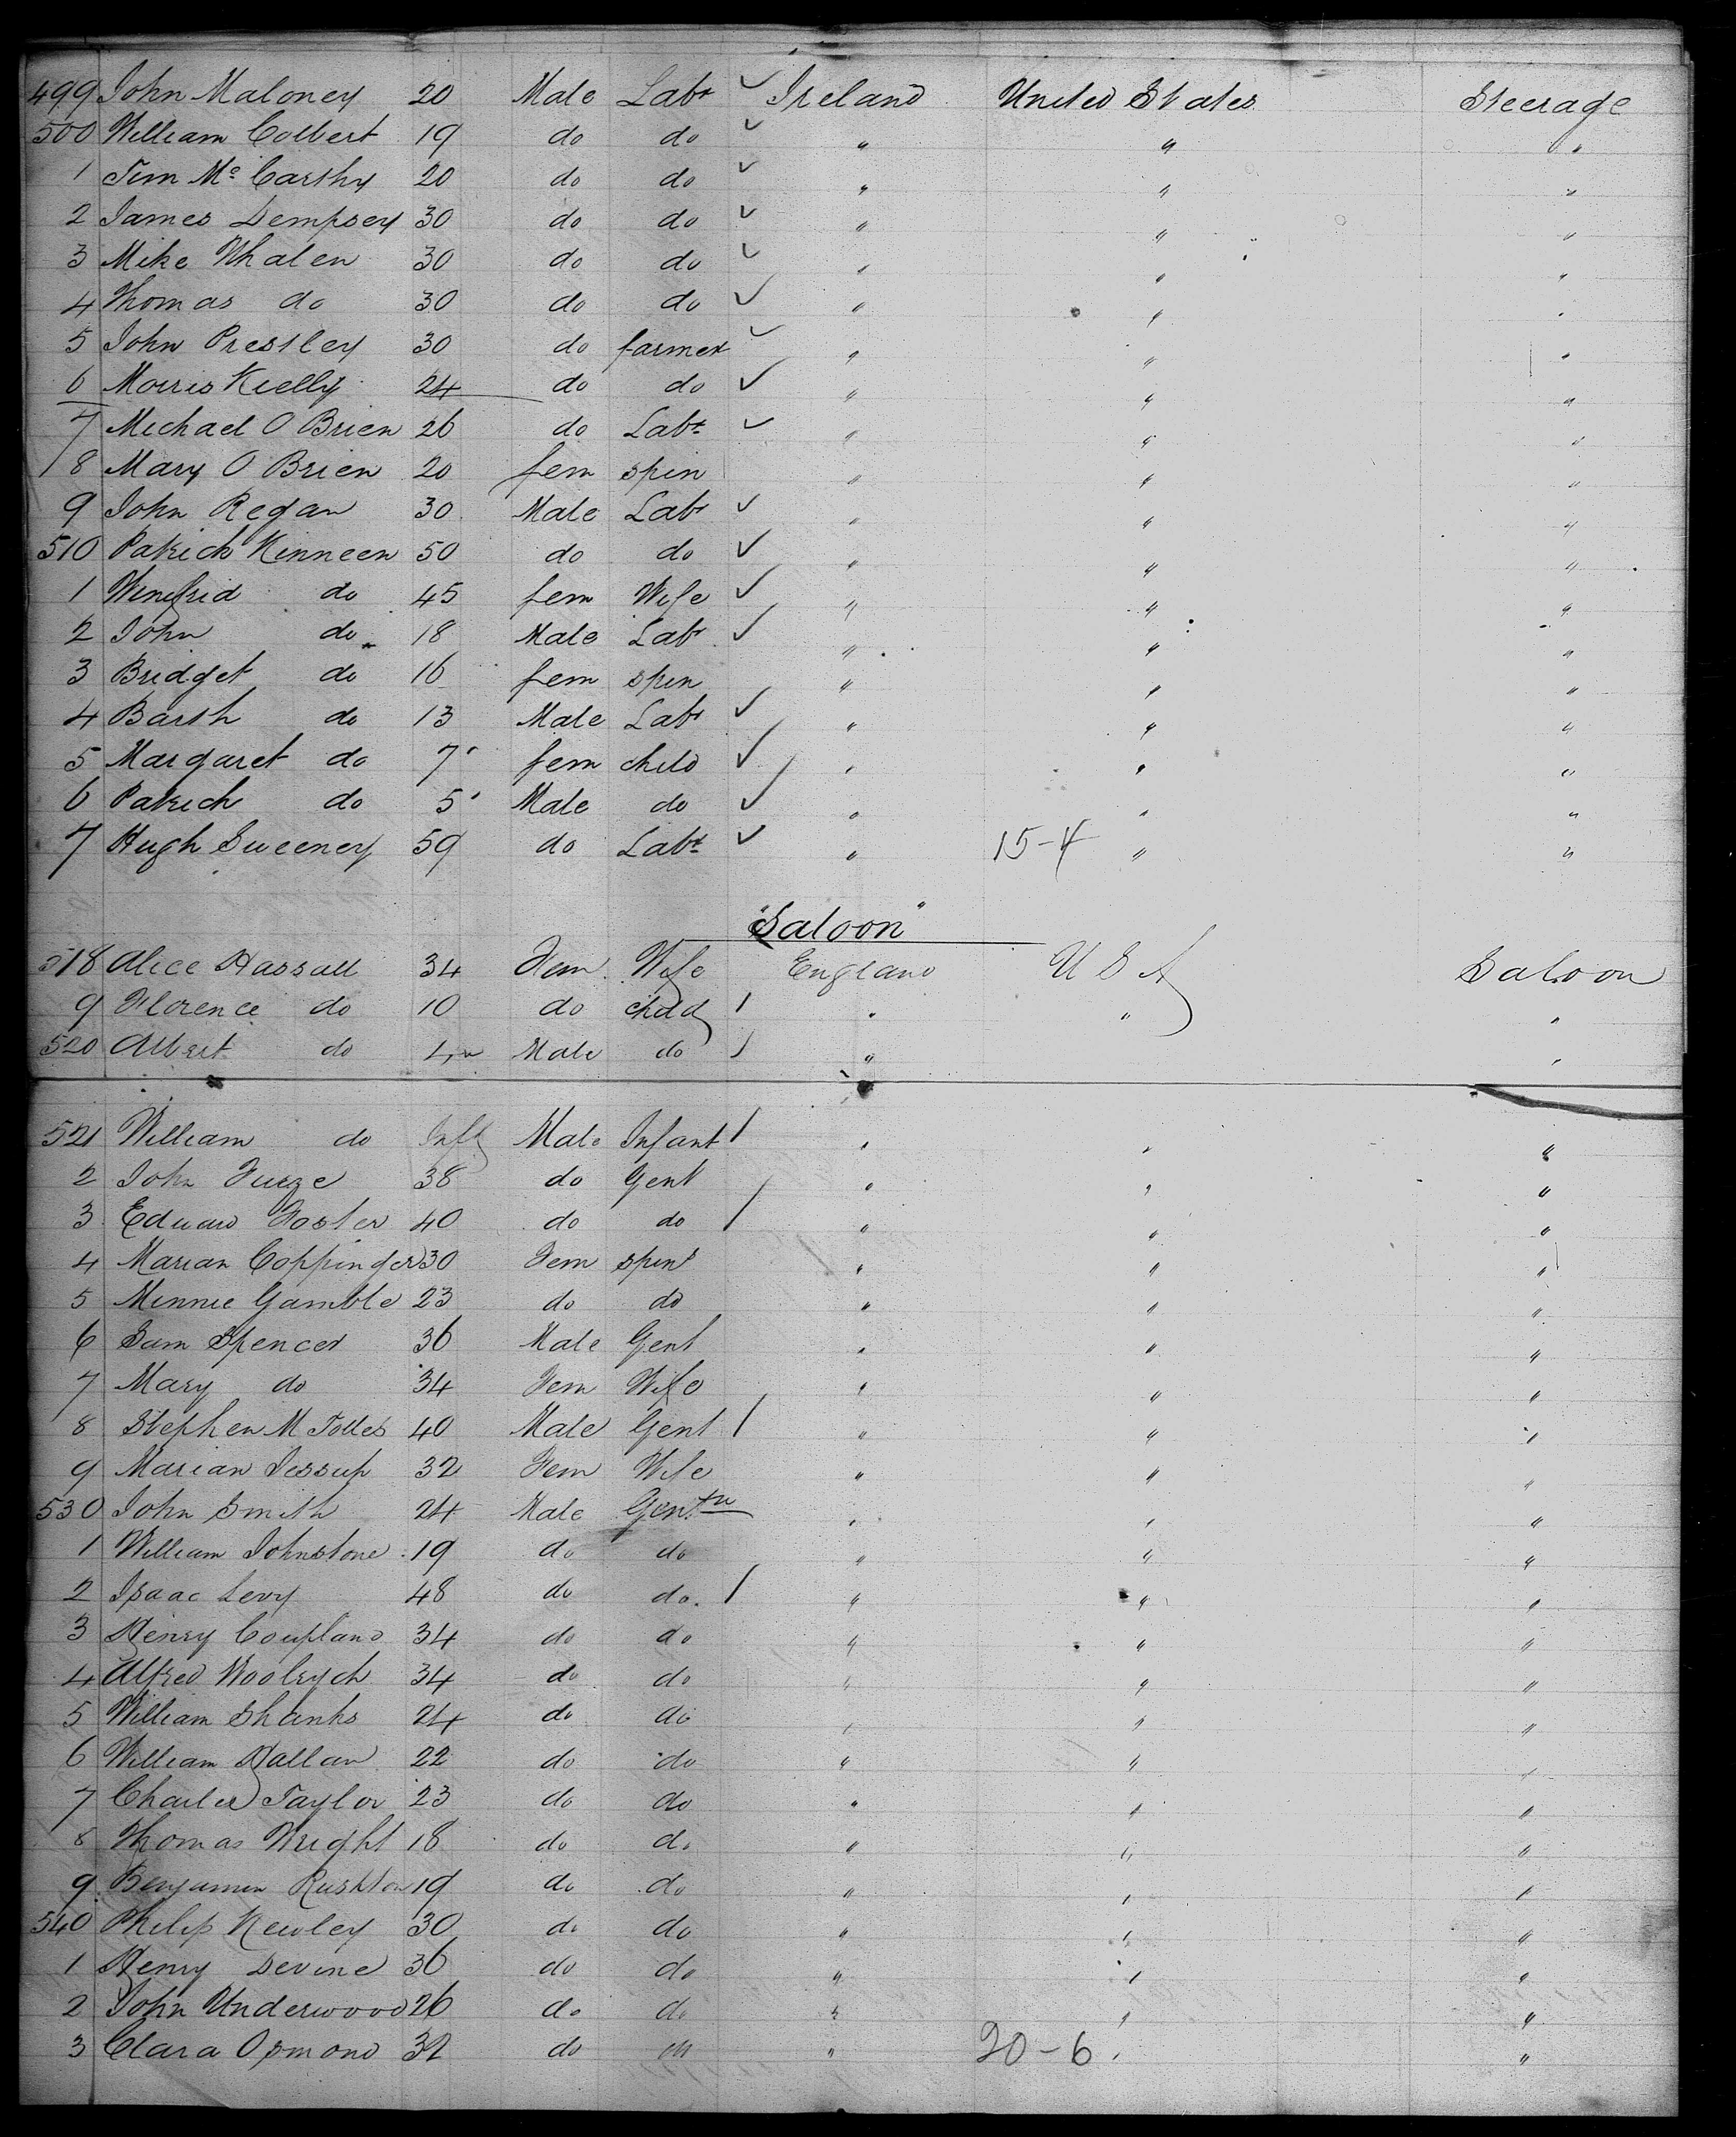 499 John Maloney 20 Male Labr ✓ Ireland United States Steerage
500 William Colbert 19 do do ✓ " " "
1 Tim Mc Carthy 20 do do ✓ " " "
2 James Dempsey 30 do do ✓ " " "
3 Mike Whalen 30 do do ✓ " " "
4 Thomas do 30 do do ✓ " " "
5 John Prestley 30 do farmer ✓ " " "
6 Morris Kielly 24 do do ✓ " " "
7 Michael O Brien 26 do Labr ✓ " " "
8 Mary O Brien 20 fem spin " " "
9 John Regan 30 Male Labr ✓ " " "
510 Patrick Kinneen 50 do do ✓ " " "
1 Winefrid do 45 fem Wife ✓ " " "
2 John do 18 Male Labr ✓ " " "
3 Bridget do 16 fem spin " " "
4 Barth do 13 Male Labr ✓ " " "
5 Margaret do 7 fem child ✓ " " "
6 Patrick do 5 Male do ✓ " " "
7 Hugh Sweeney 59 do Labr ✓ " 15-4 " "
"Saloon"
518 Alice Hassall 34 Fem Wife England U S A Saloon
9 Florence do 10 do child / " " "
520 Albert do Male do / " "
521 William do Inft Male Infant / " " "
2 John Furze 38 do Gent " " "
3 Edward Foster 40 do do / " " "
4 Marian Coppinger 30 Fem spinr " " "
5 Minnie Gamble 23 do do " " "
6 Sam Spencer 36 Male Gent " " "
7 Mary do 34 Fem Wife " " "
8 Stephen M Tolles 40 Male Gent / " " "
9 Marian Jessup 32 Fem Wife " " "
530 John Smith 24 Male Gentn " " "
1 William Johnstone 19 do do " " "
2 Isaac Levy 48 do do. / " " "
3 Henry Coupland 34 do do " " "
4 Alfred Woolrych 34 do do " " "
5 William Shanks 24 do do " " "
6 William Hallan 22 do do " " "
7 Charles Taylor 23 do do " " "
8 Thomas Wright 18 do do " " "
9 Benjamin Rushton 19 do do " " "
540 Philip Newley 30 do do " " "
1 Henry Devine 36 do do " " "
2 John Underwood 26 do do " " "
3 Clara Osmond 32 do " 20-6 " "